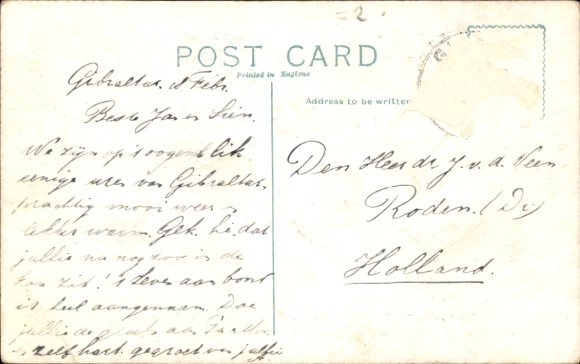 = 2.
POST CARD
Printed in England
Address to be written
Gibraltar. Febr.
Beste Jan en Sien.
We zijn op 't oogenblik
eenige uren van Gibraltar.
prachtig mooi weer
lekker warm. Gek hè, dat
jullie nu nog zoo in de
kou zit! 't Leven aan boord
is heel aangenaam. Doe
jullie de groeten aan Tante
zelf hart. gegroet van jullie
Den Heer J. v. d. Veen
Roden. (Dr.)
Holland.